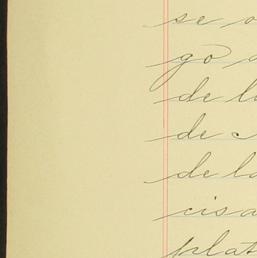 se o
go a
de l
de c
de la
cis a
plat